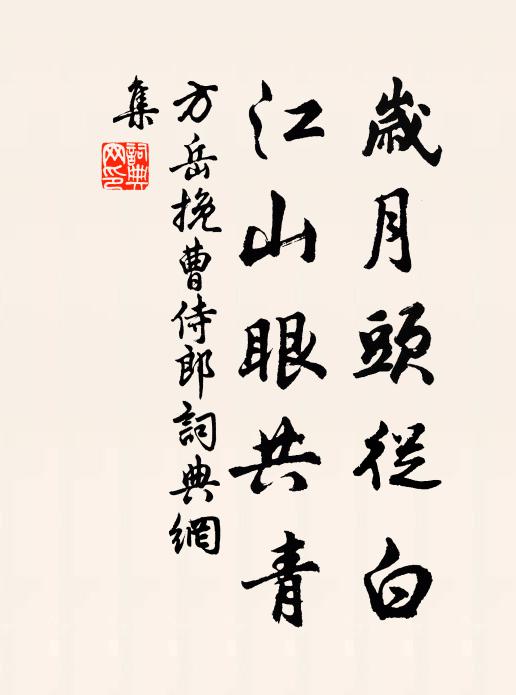 歲月頭從白
江山眼共青
方岳挽曹侍郎詞典網
集
詞典
网印